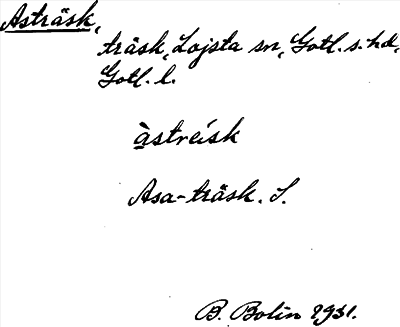 Asträsk,
träsk, Lojsta sn, Gotl. s. hd,
Gotl. l.
àstreísk
Asa-träsk. S.
B. Bolin 1931.